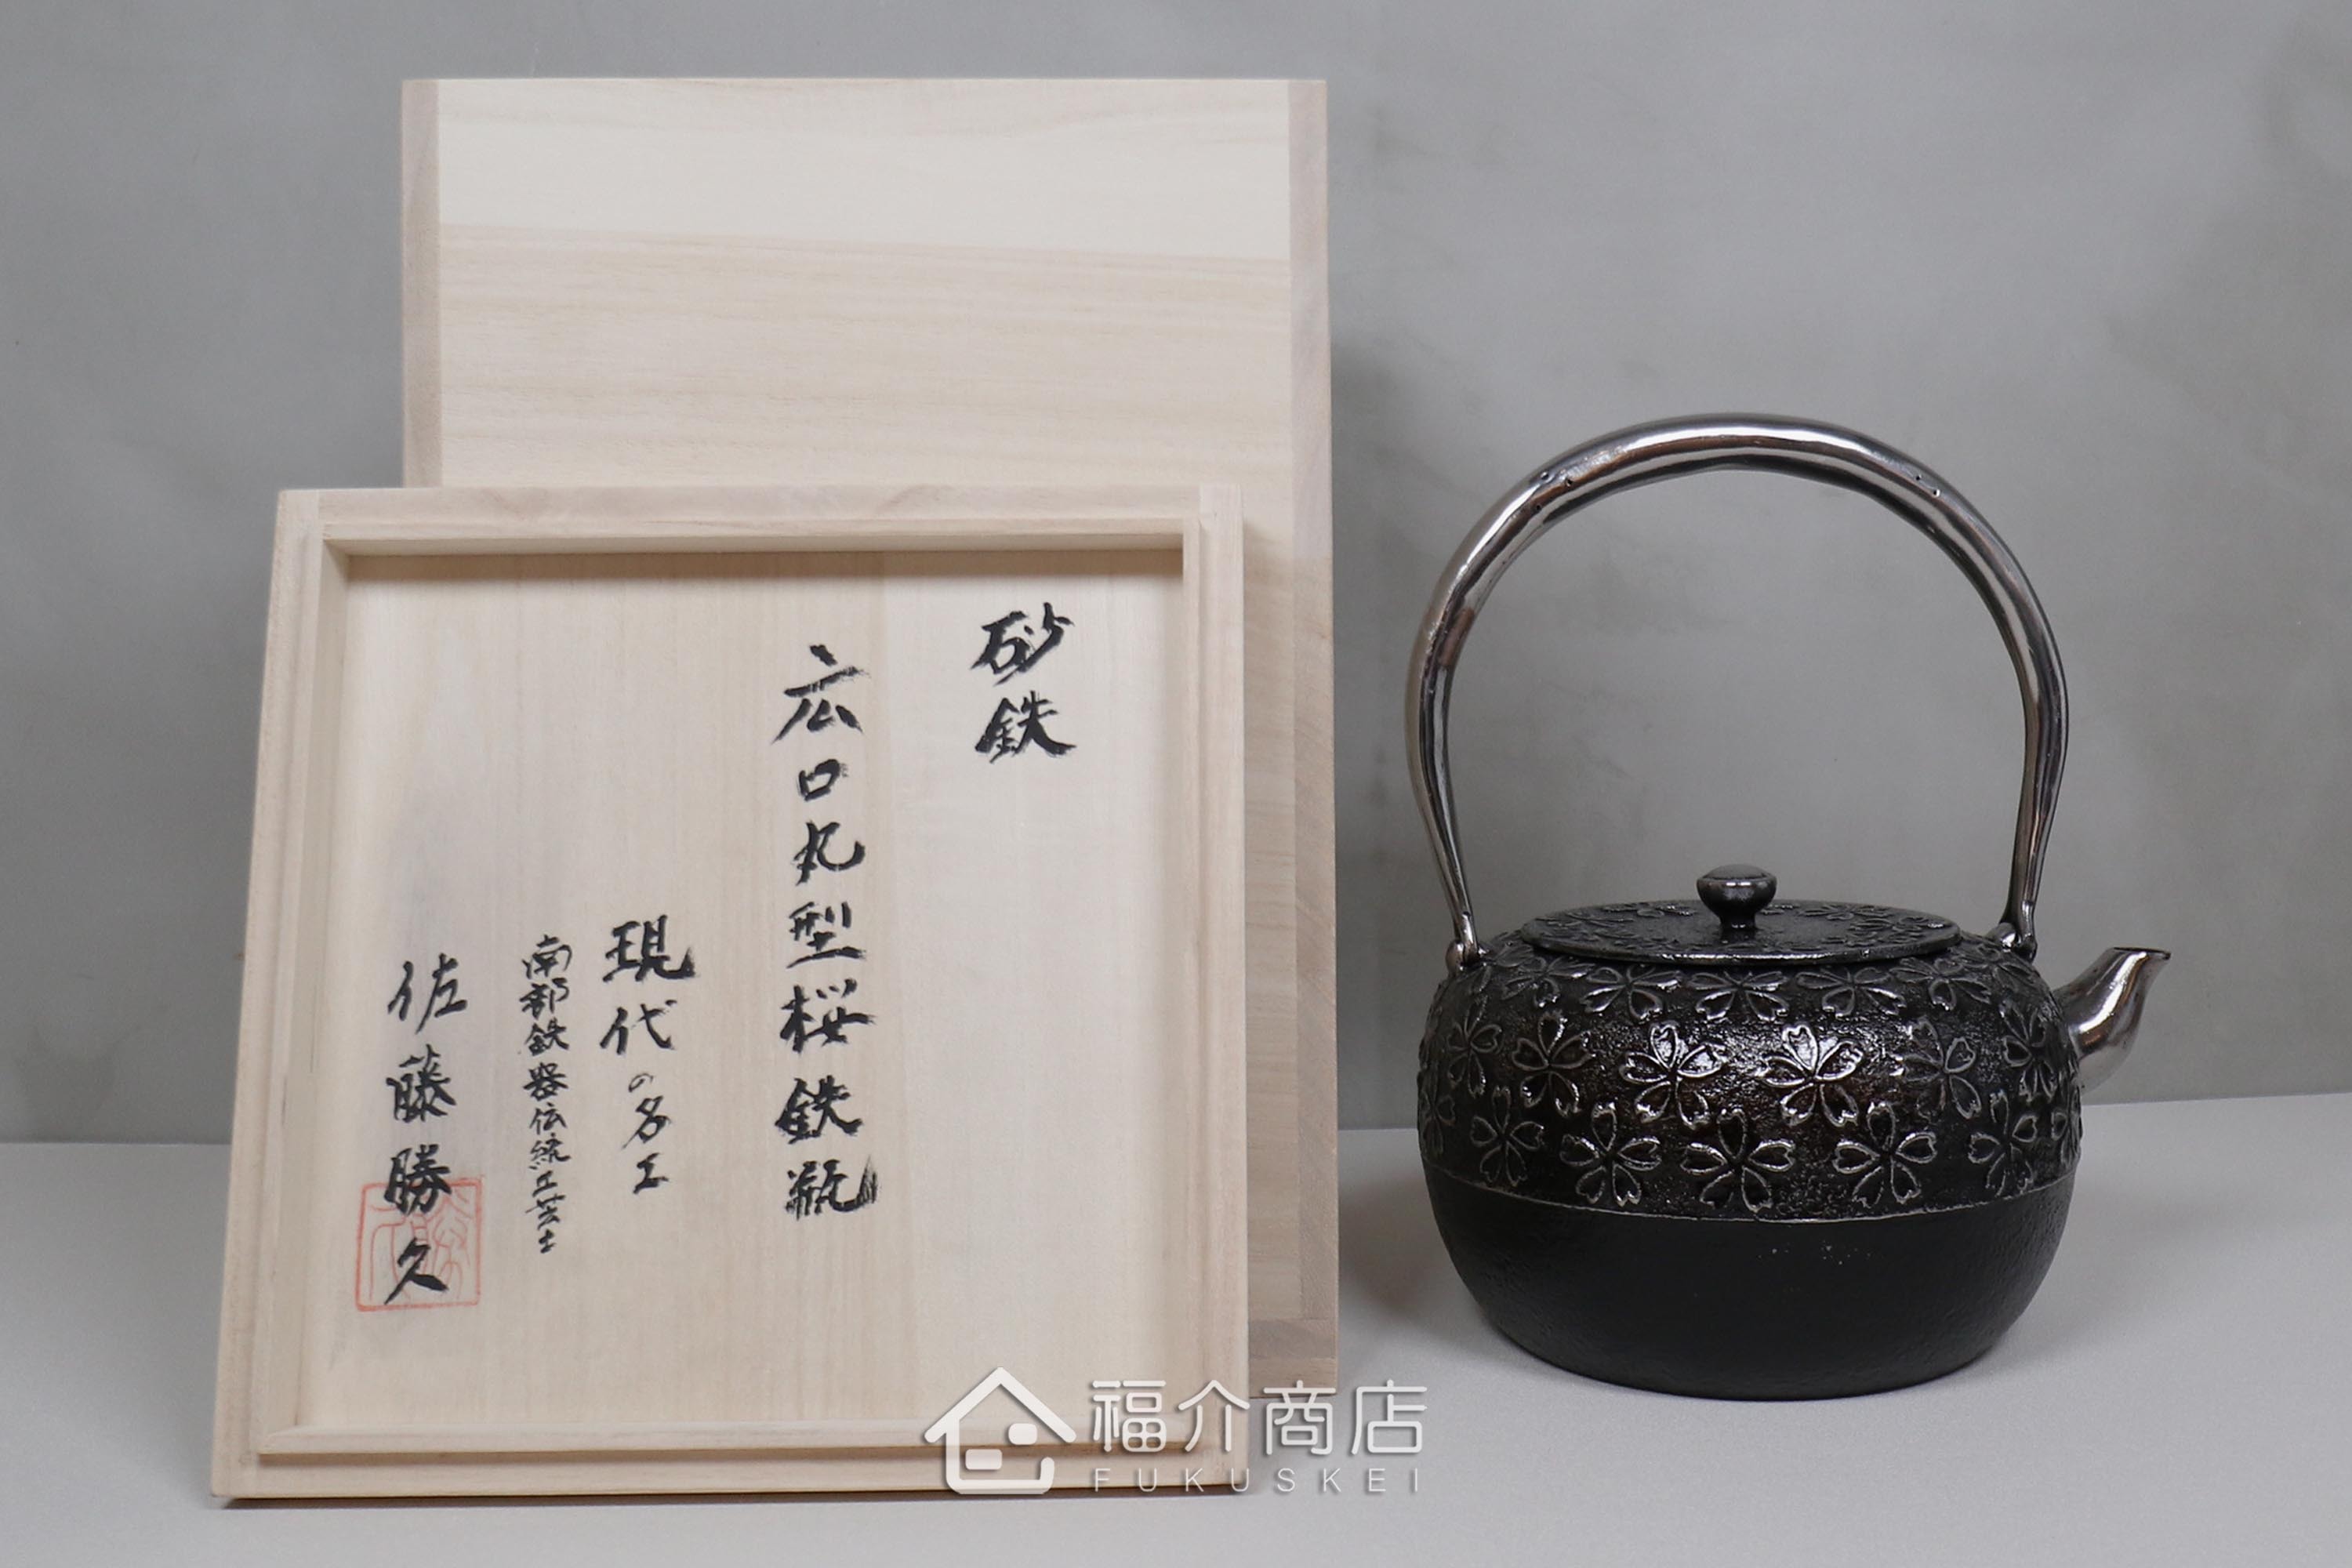 砂鉄
広口丸型桜鉄瓶
現代の名工
南部鉄器伝統工芸士
佐藤勝久
福介商店
FUKUSKEI